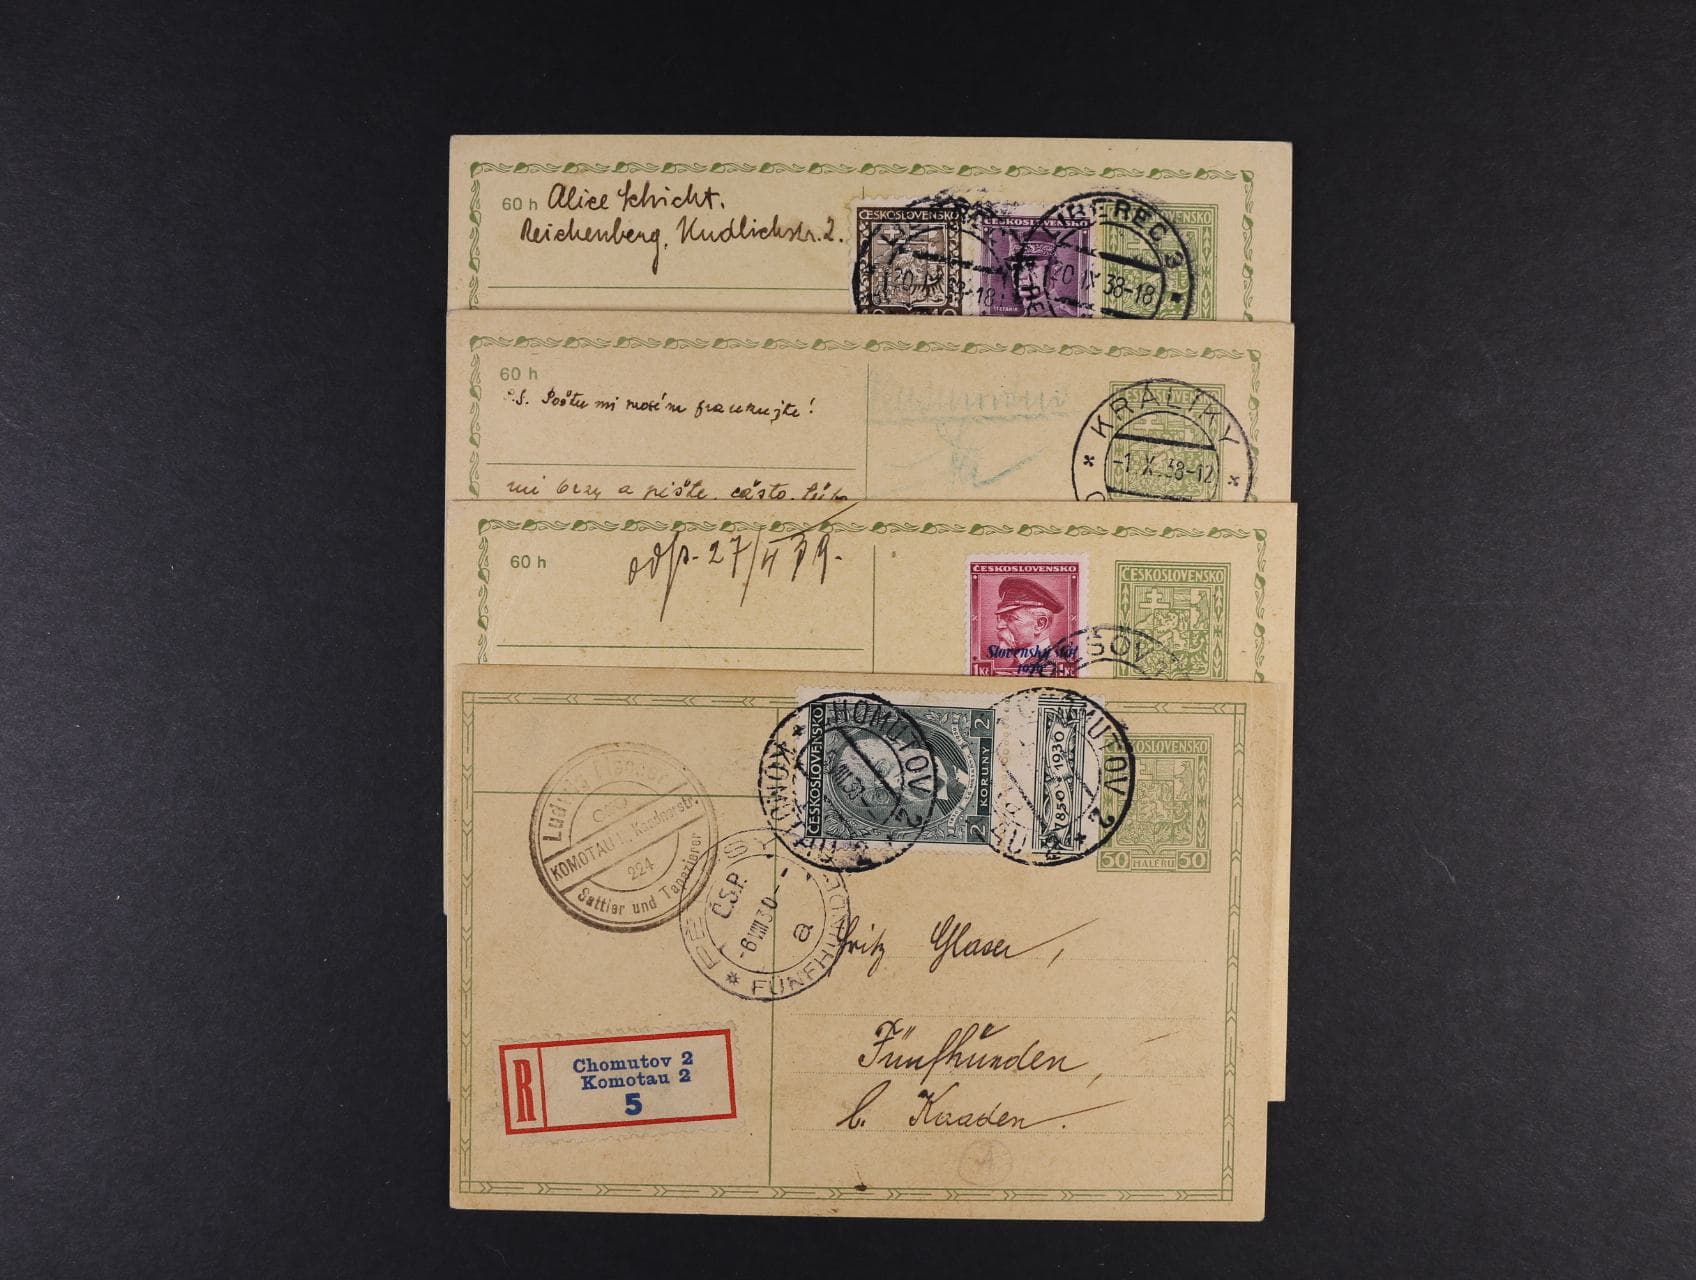 60 h Alice Schicht.
Reichenberg, Kudlichstr. 2.
ČESKOSLOVENSKO
ČESKOSLOVENSKO
LIBEREC 3
20 IX 38-18
20 IX 38-18
ČESKOSLOVENSKO
60 h
P.S. Poštu mi prosím frankujte!
mi brzy a pište často
KRÁLÍKY
-1. X. 38-12
ČESKOSLOVENSKO
60 h
odp. 27/II 39.
ČESKOSLOVENSKO
Slovenský štát
1939
1 Kč
ČESKOSLOVENSKO
Ludwig
KOMOTAU Kaadnerstr.
224
Sattler und Tapezierer
ČESKOSLOVENSKO
2 KORUNY 2
1850 1930
CHOMUTOV 2
KOMOTAU 2
CHOMUTOV 2
ČESKOSLOVENSKO
50 HALÉŘŮ 50
Č.S.P.
-6 VIII 30
a
FÜNFHUNDEN
Fritz Glaser,
Fünfhunden,
b. Kaaden.
R
Chomutov 2
Komotau 2
5